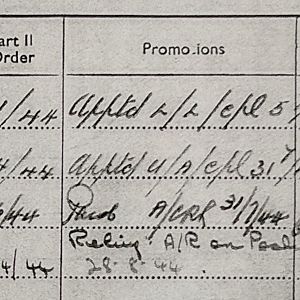 art II
Order
Promotions
/44 Apptd L/L/Cpl 5
/44 Apptd U/A/Cpl 31/7
/44 A/CPL 31/7/44
Reling: A/R on
4/44 28-8-44.